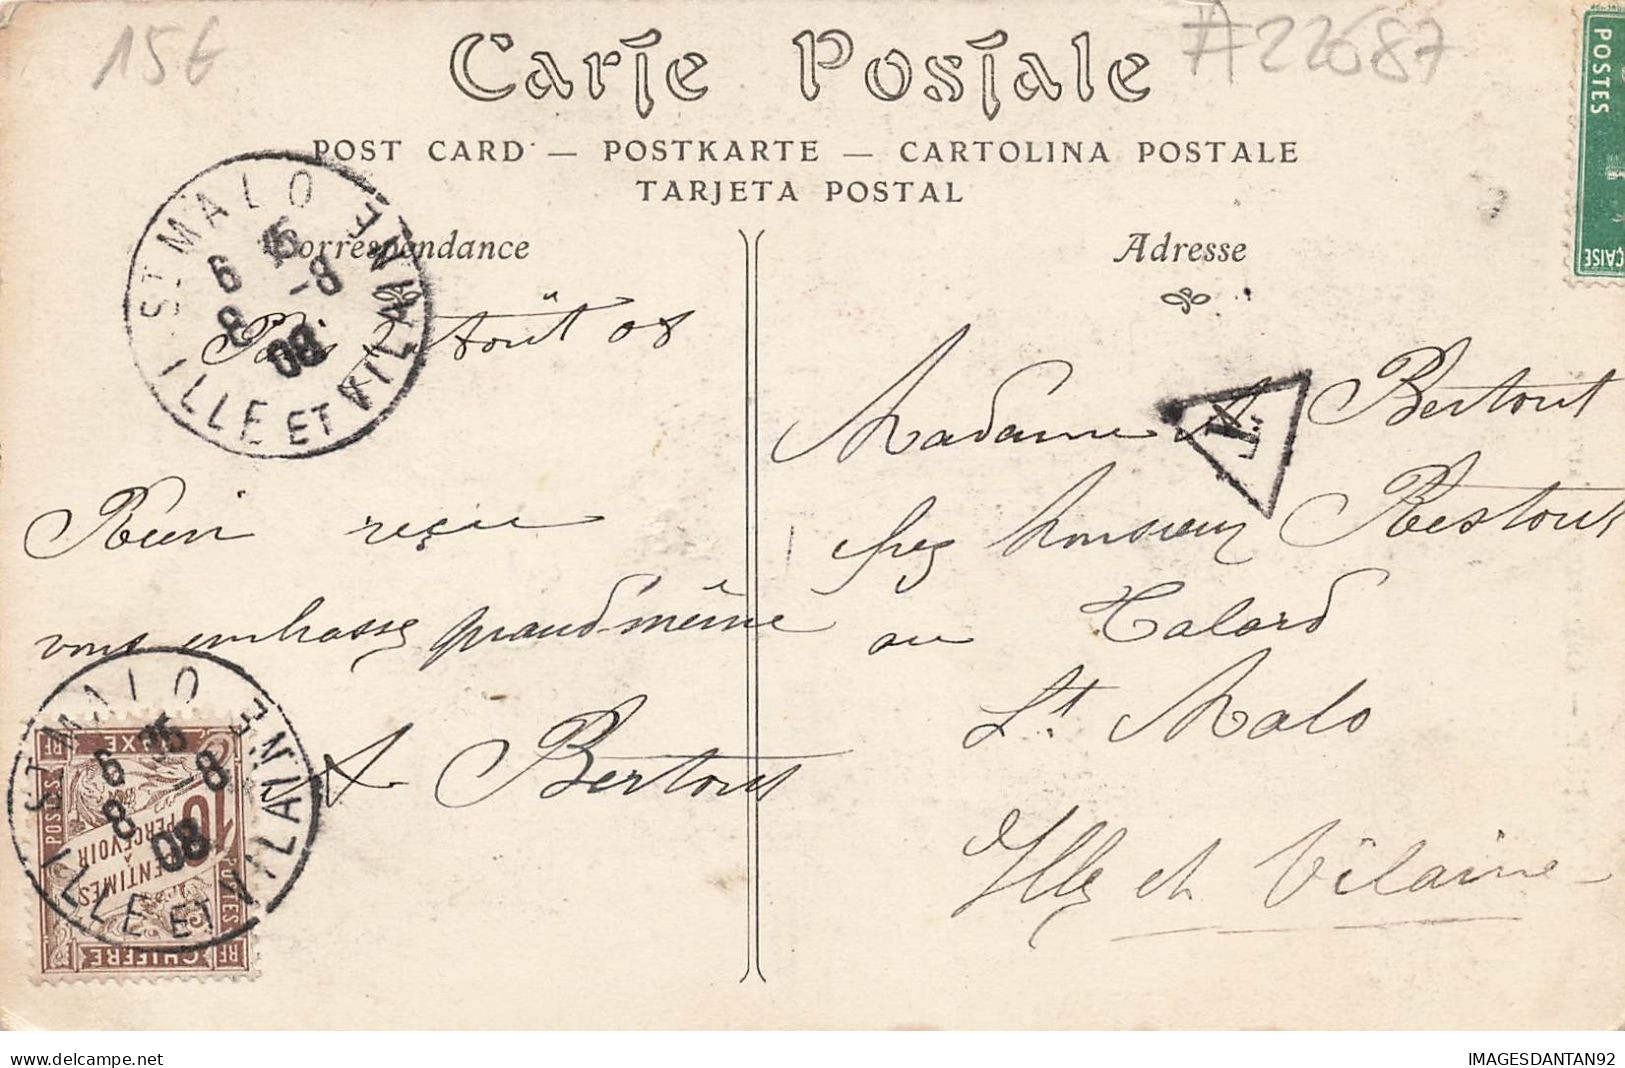 15€
#22687
Carte Postale
POST CARD — POSTKARTE — CARTOLINA POSTALE
TARJETA POSTAL
POSTES
Correspondance
Adresse
ST MALO
6 15
8 -8
08
ILLE ET VILAINE
Août 08
Rien reçu
vous embrasse quand-même
A Bertout
Madame A Bertout
T
chez Monsieur Restout
au Talard
St. Malo
Ille et Vilaine
ST MALO
6 15
8 -8
08
ILLE ET VILAINE
CHIFFRE TAXE
POSTES
RF
10
CENTIMES
À
PERCEVOIR
delcampe.net
IMAGESDANTAN92